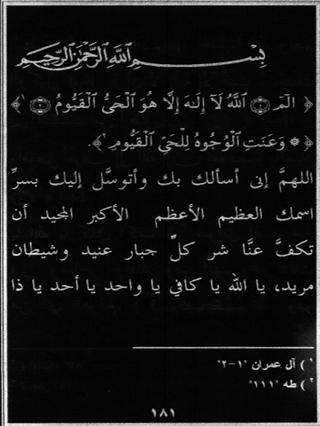 بِسْمِ اللَّهِ الرَّحْمَٰنِ الرَّحِيمِ
﴿ الٓمٓ ۝١ اللَّهُ لَآ إِلَٰهَ إِلَّا هُوَ الْحَيُّ الْقَيُّومُ ۝٢ ﴾¹
﴿ ۞ وَعَنَتِ الْوُجُوهُ لِلْحَيِّ الْقَيُّومِ ﴾².
اللهمَّ إنى أسألك بك وأتوسَّل إليك بسرِّ
اسمك العظيم الأعظم الأكبر المجيد أن
تكفَّ عنَّا شر كلِّ جبار عنيد وشيطان
مريد، يا الله يا كافي يا واحد يا أحد يا ذا
¹) آل عمران "١-٢"
²) طه "١١١"
١٨١